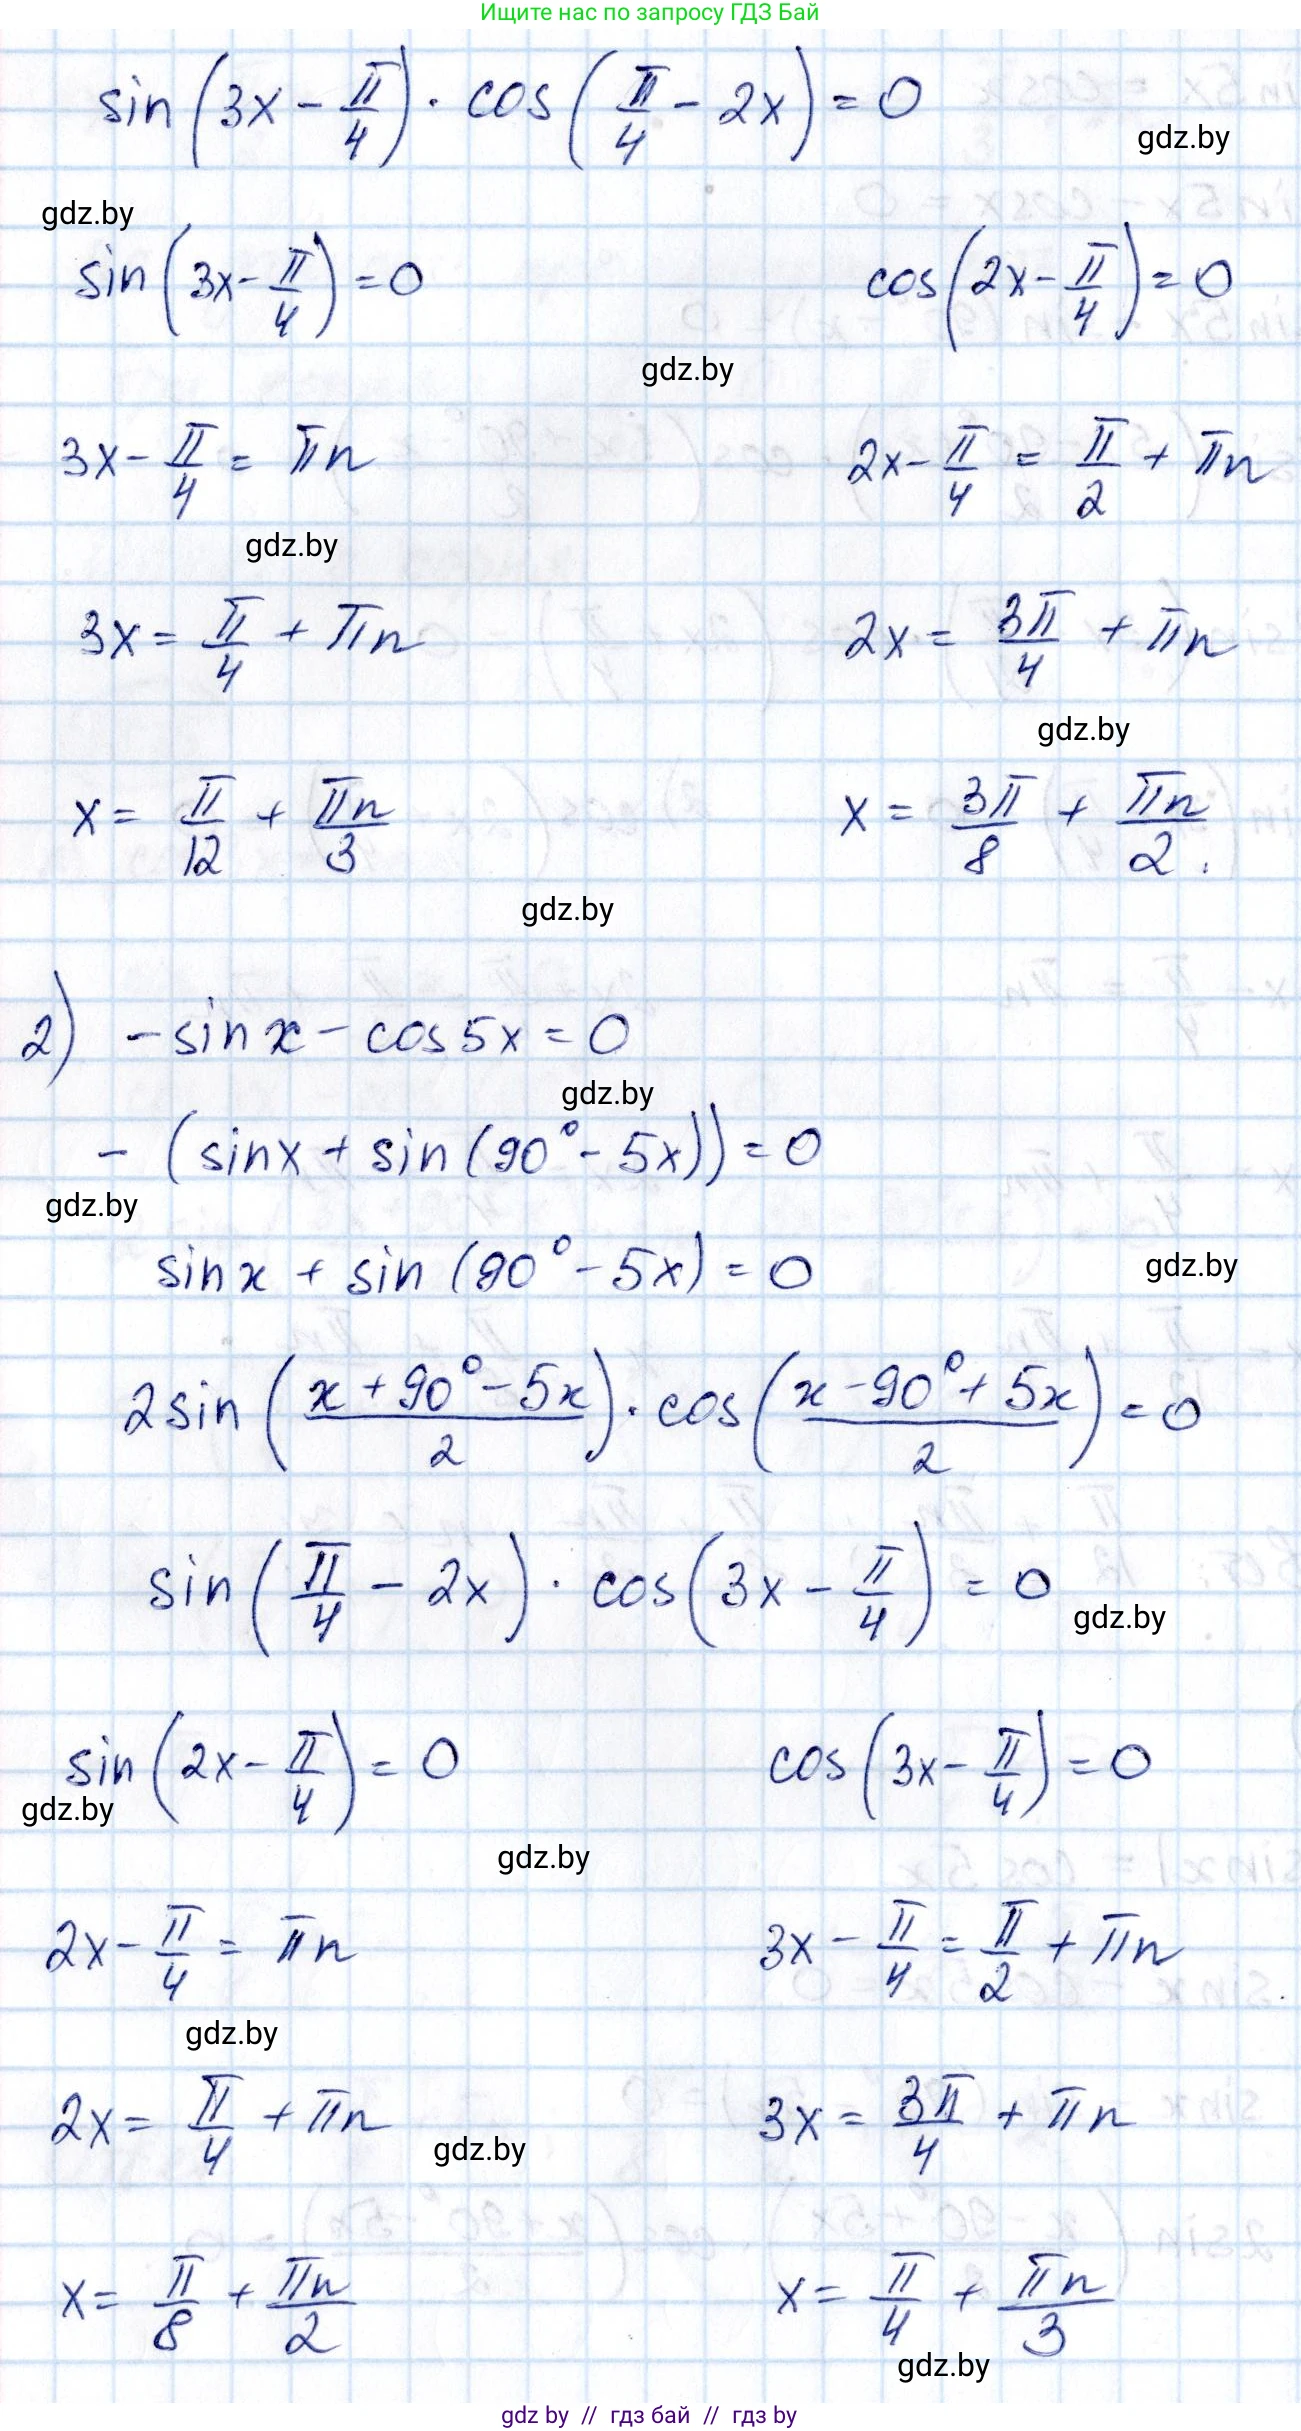 Ищите нас по запросу ГДЗ Бай
sin(3x - π/4) · cos(π/4 - 2x) = 0
gdz.by
gdz.by
sin(3x - π/4) = 0 cos(2x - π/4) = 0
gdz.by
3x - π/4 = πn 2x - π/4 = π/2 + πn
gdz.by
3x = π/4 + πn 2x = 3π/4 + πn
gdz.by
x = π/12 + πn/3 x = 3π/8 + πn/2.
gdz.by
2) - sin x - cos 5x = 0
gdz.by
- (sin x + sin (90° - 5x)) = 0
gdz.by
sin x + sin (90° - 5x) = 0
gdz.by
2 sin ((x + 90° - 5x)/2) · cos ((x - 90° + 5x)/2) = 0
sin (π/4 - 2x) · cos (3x - π/4) = 0
gdz.by
sin (2x - π/4) = 0 cos (3x - π/4) = 0
gdz.by
gdz.by
2x - π/4 = πn 3x - π/4 = π/2 + πn
gdz.by
2x = π/4 + πn 3x = 3π/4 + πn
gdz.by
x = π/8 + πn/2 x = π/4 + πn/3
gdz.by
gdz by // гдз бай // гдз by